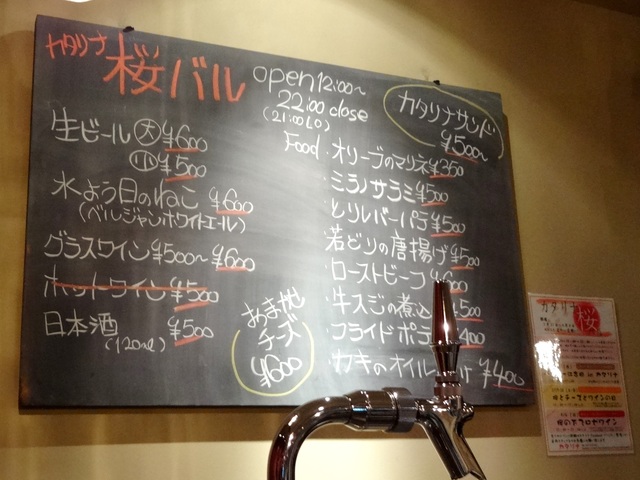 カタリナ
桜バル
open 12:00~
22:00 close
(21:00 LO)
カタリナサンド
¥500~
生ビール 大 ¥600
小 ¥500
水よう日のねこ ¥600
(ベルジャンホワイトエール)
グラスワイン ¥500~¥600
ホットワイン ¥500
日本酒 ¥500
(120ml)
チーズ
¥600
Food ・オリーブのマリネ ¥350
・ミラノサラミ ¥500
・とりレバーパテ ¥500
若どりの唐揚げ ¥500
・ローストビーフ
・牛スジの煮込 500
・フライドポテ 400
・カキのオイル け ¥400
カタリナ
桜